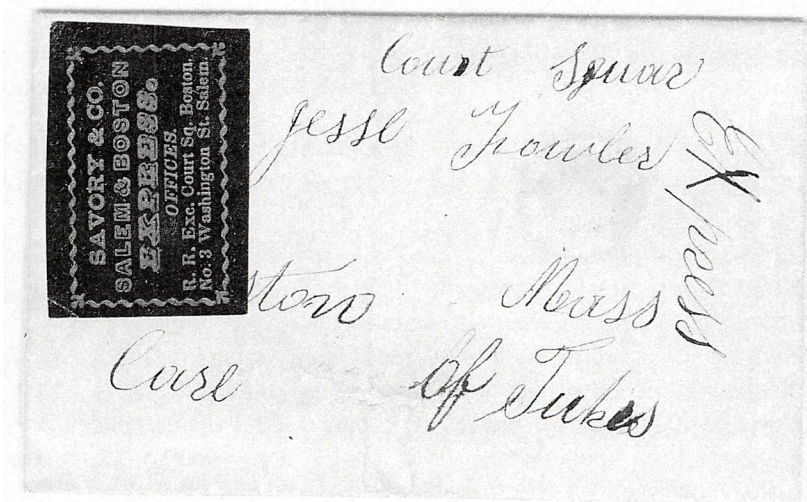 SAVORY & CO.
SALEM & BOSTON
EXPRESS.
OFFICES.
R. R. Exc. Court Sq. Boston.
No. 3 Washington St. Salem.
Court Squar
Jesse Fowler
ston Mass
Care of Tukes
Express